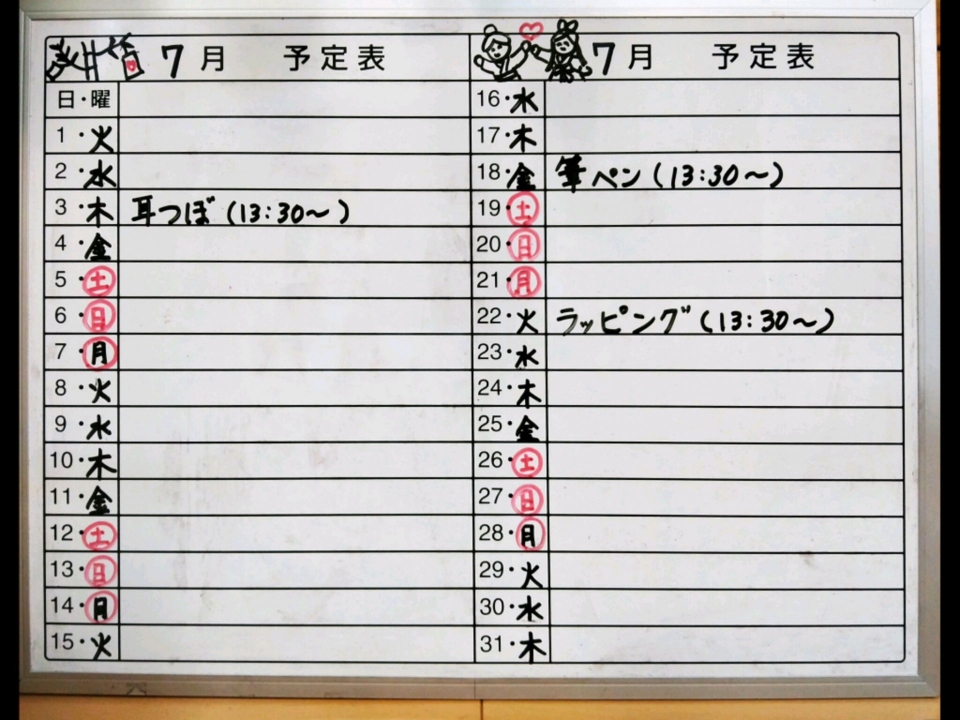 7月 予定表
日・曜
1・火
2・水
3・木 耳つぼ(13:30～)
4・金
5・土
6・日
7・月
8・火
9・水
10・木
11・金
12・土
13・日
14・月
15・火
7月 予定表
16・水
17・木
18・金 筆ペン(13:30～)
19・土
20・日
21・月
22・火 ラッピング(13:30～)
23・水
24・木
25・金
26・土
27・日
28・月
29・火
30・水
31・木